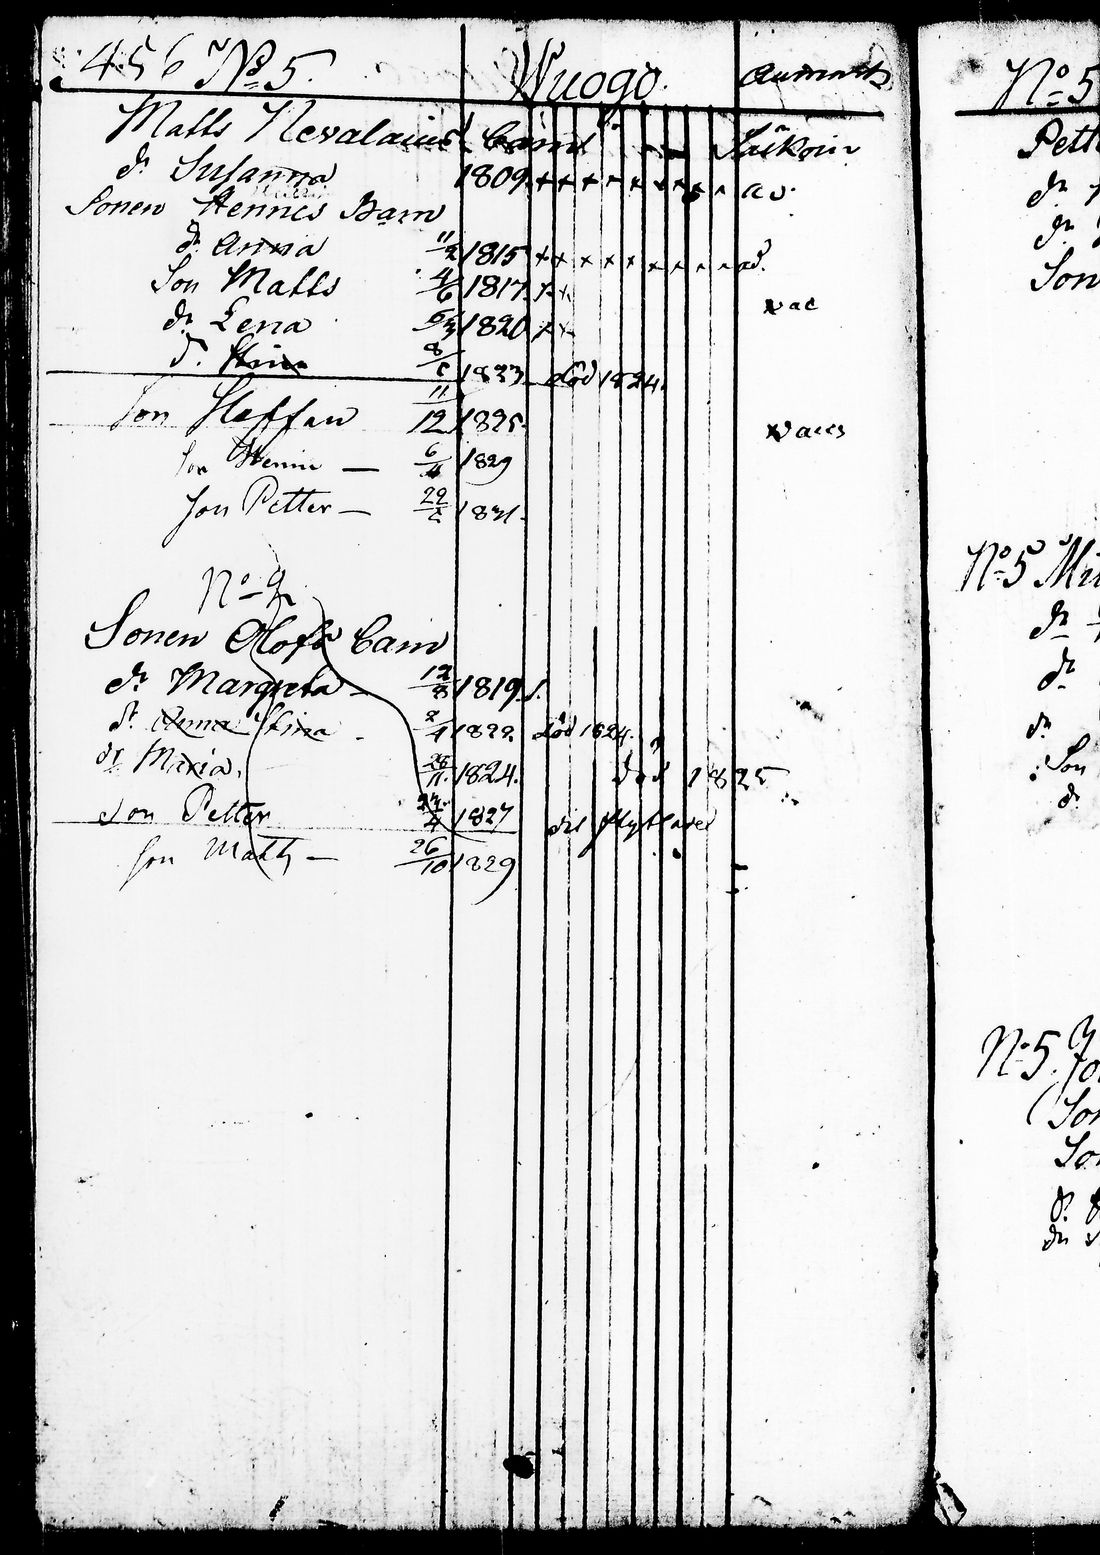 456 No 5. Wuogo. Anmerk
Matts Nevalainens barn Jäskein
dr Susanna 1809. + + × × × × × × ad.
Sonen Hennes Barn
dr Anna 11/2 1815 + × × × × × × × × ad.
Son Matts 4/6 1817. × × vac
dr Lena 5/3 1820 × ×
d. Stina 8/ 1823 död 1824.
Son Steffan 11/12 1825. vacc
Son Henric — 6/4 1829
Son Petter — 29/2 1831.
No 9
Sonen Olofs barn
dr Margreta — 12/8 1819.
dr Anna Stina 2/4 1822. död 1824.
dr Maria. 25/11 1824. död 1825
Son Petter 27/4 1827 dit flyttade
Son Matts — 26/10 1829
No 5
Pett
dr
dr
Son
No 5
dr
dr
dr
Son
d.
No 5.
Son
Son
d.
dr